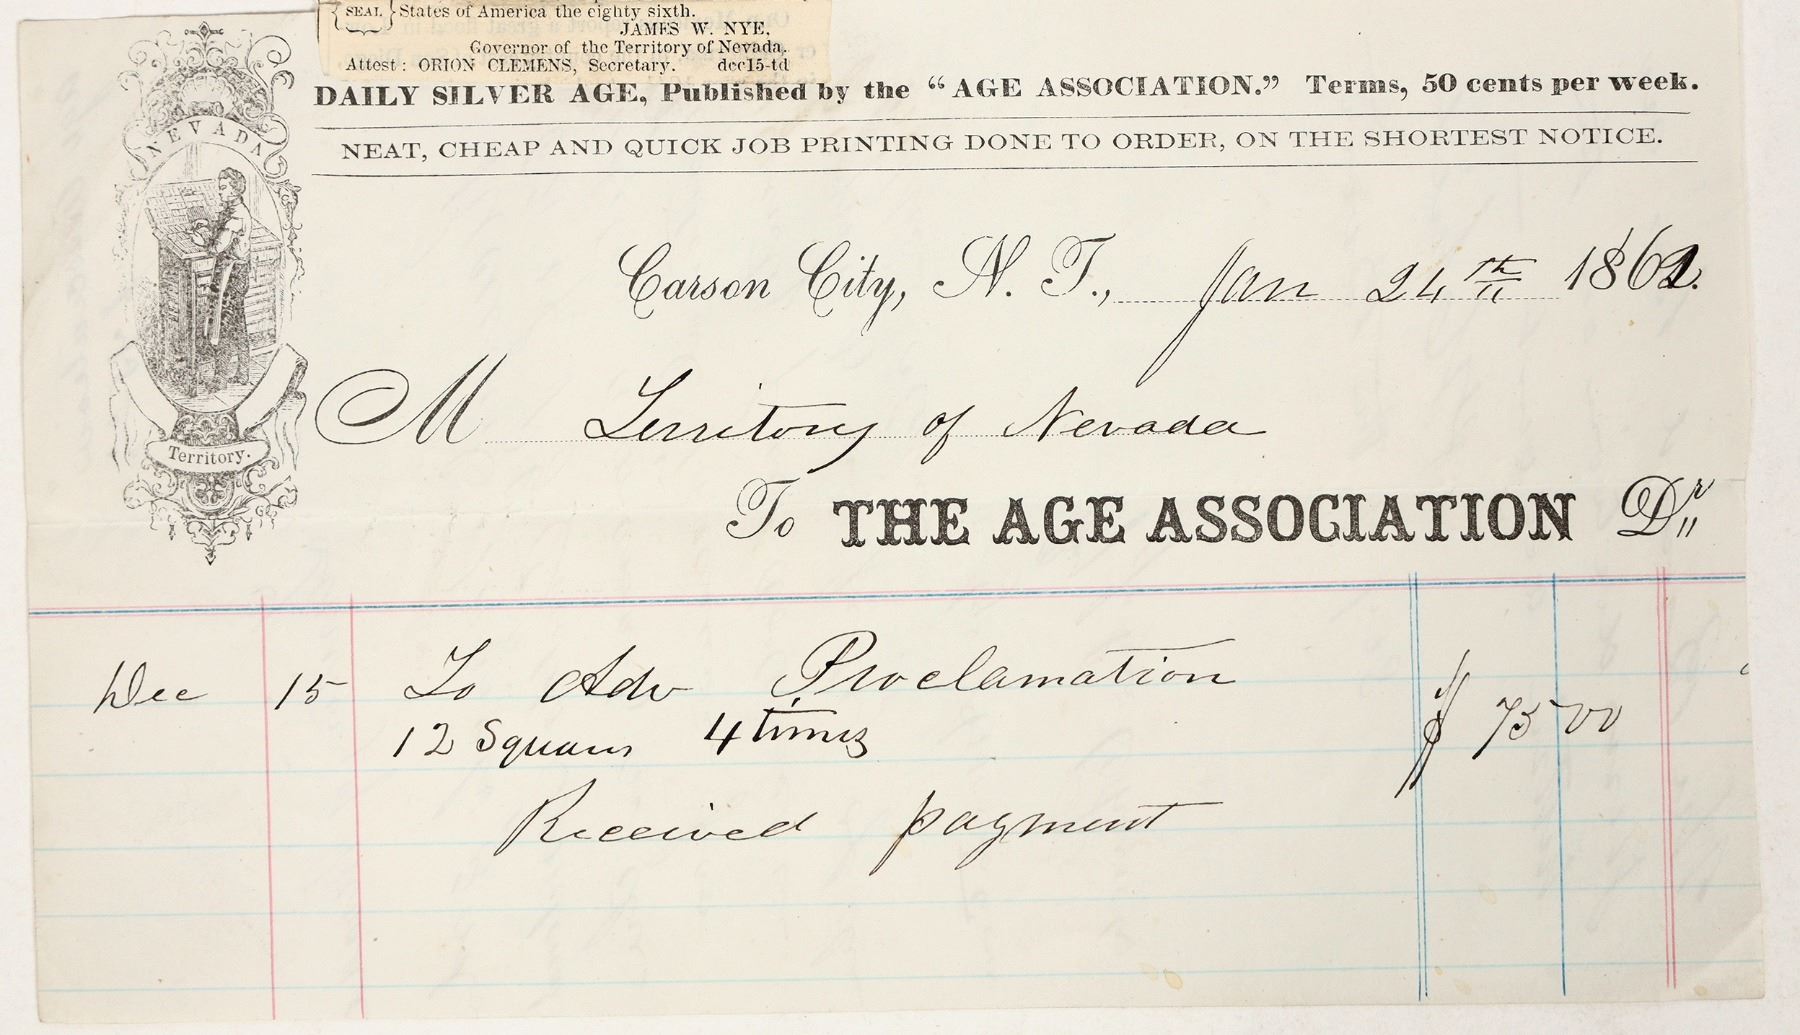 SEAL States of America the eighty sixth.
JAMES W. NYE,
Governor of the Territory of Nevada.
Attest: ORION CLEMENS, Secretary. dec15-td
DAILY SILVER AGE, Published by the “AGE ASSOCIATION.” Terms, 50 cents per week.
NEAT, CHEAP AND QUICK JOB PRINTING DONE TO ORDER, ON THE SHORTEST NOTICE.
NEVADA
Territory.
Carson City, N. T., Jan 24th 1862.
M Territory of Nevada
To THE AGE ASSOCIATION Dr
Dec 15 To Adv Proclamation
12 Squares 4 times $ 75 00
Received payment